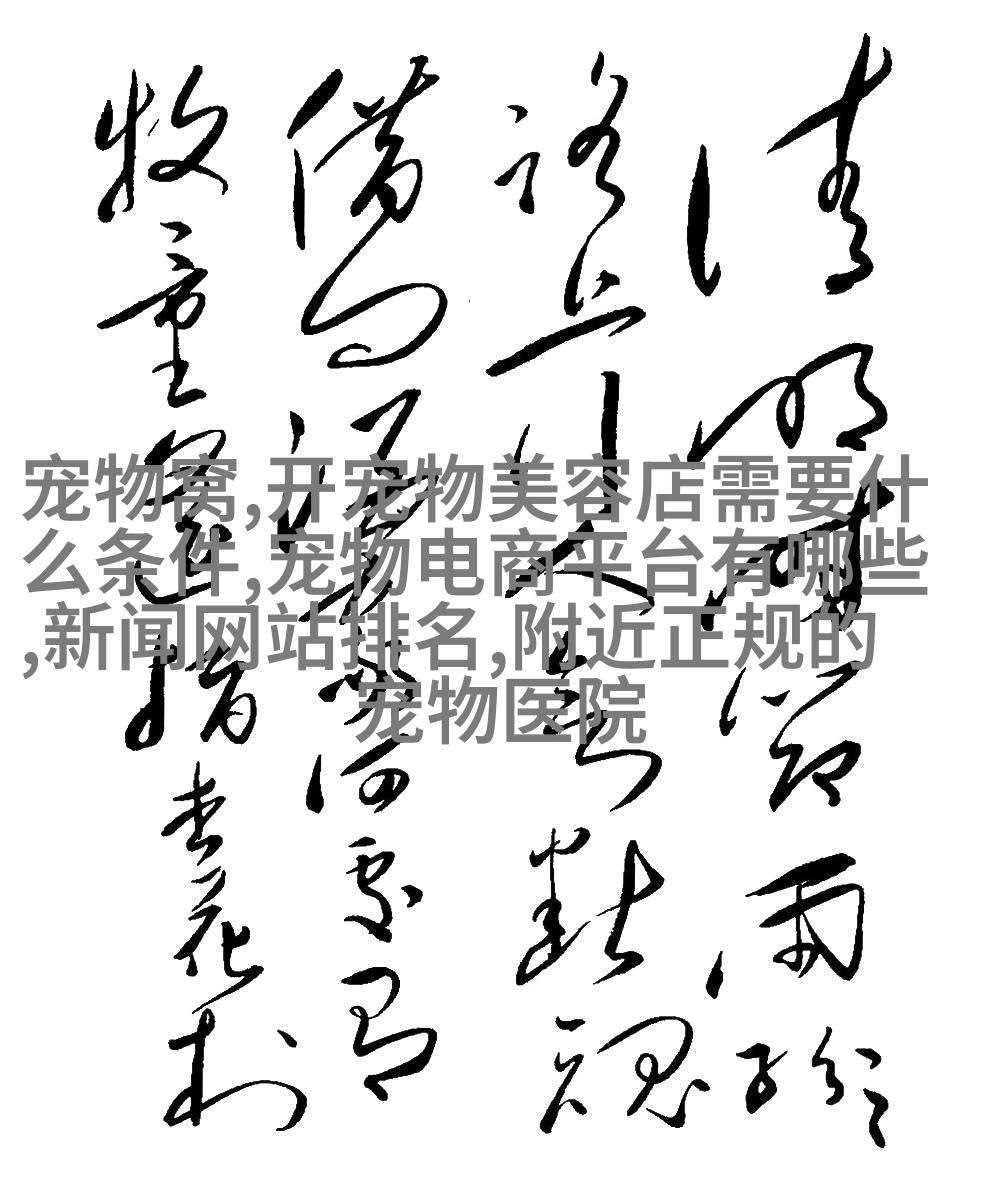 清明时节雨纷纷
路上行人欲断魂
借问酒家何处有
牧童遥指杏花村
宠物窝,开宠物美容店需要什
么条件,宠物电商平台有哪些
,新闻网站排名,附近正规的
宠物医院